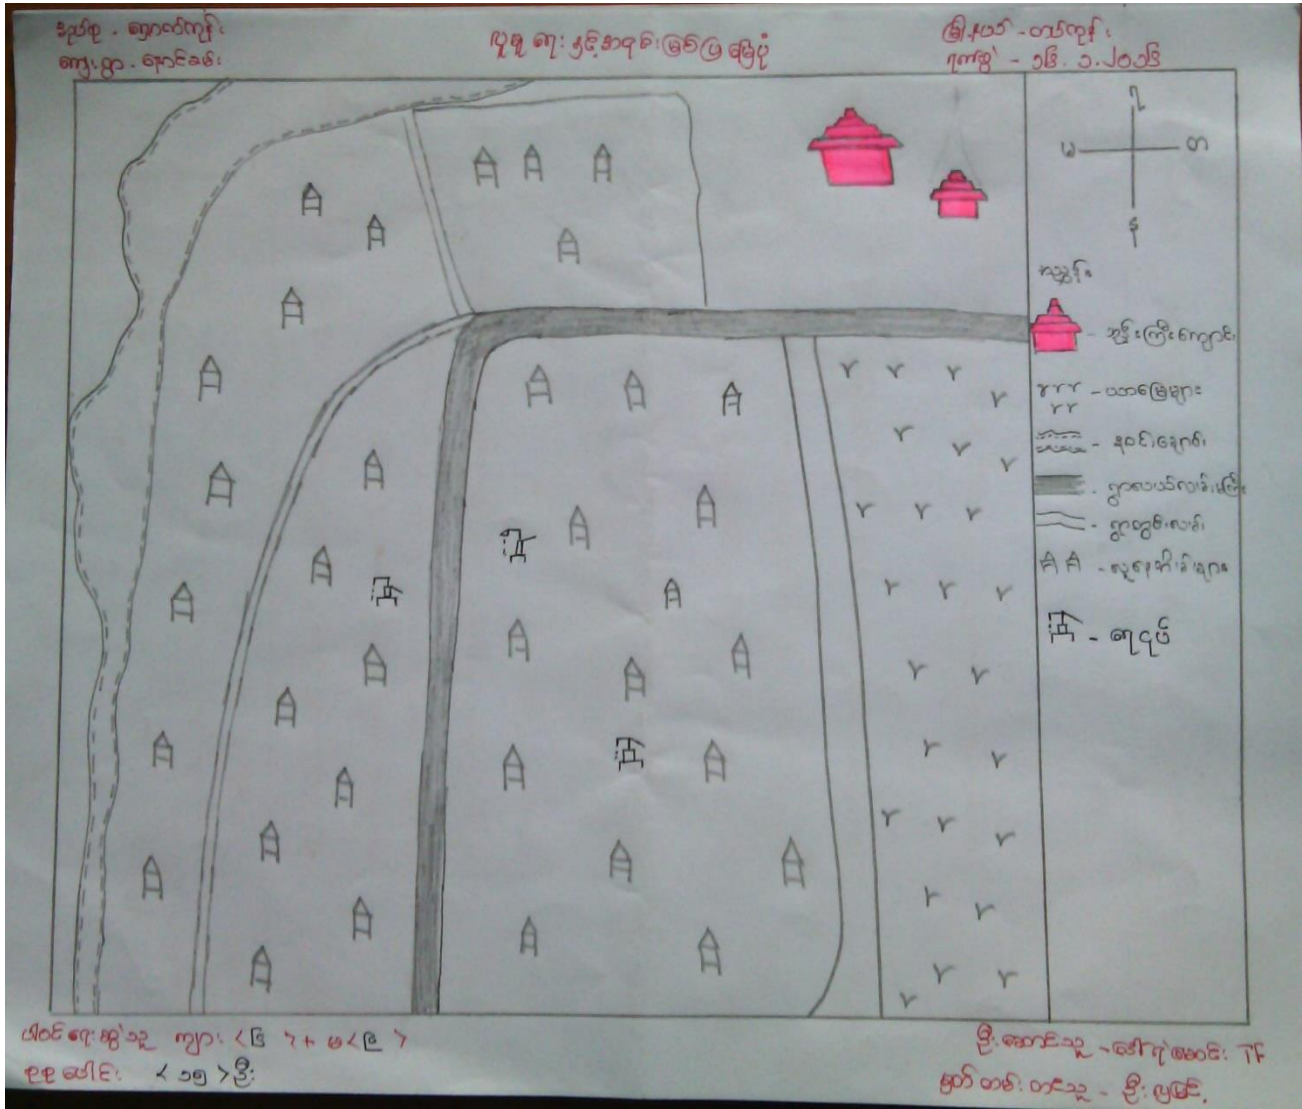 အုပ်စု - ရှောက်ကုန်း
ကျေးရွာ - နောင်ခမ်း
လူမှုရေးနှင့်အရင်းမြစ်ပြမြေပုံ
မြို့နယ် - တပ်ကုန်း
ရက်စွဲ - ၁၆.၁.၂၀၁၆
မ
တ
အညွှန်း
ဘုန်းကြီးကျောင်း
ယာမြေများ
ရွာလယ်လမ်းမကြီး
ရွာတွင်းလမ်း
လူနေအိမ်များ
ရေငုပ်
ပါဝင်ရေးဆွဲသူ ကျား
စုစုပေါင်း < ၁၅ > ဦး
ဦးဆောင်သူ - TF
မှတ်တမ်းတင်သူ - ဦး